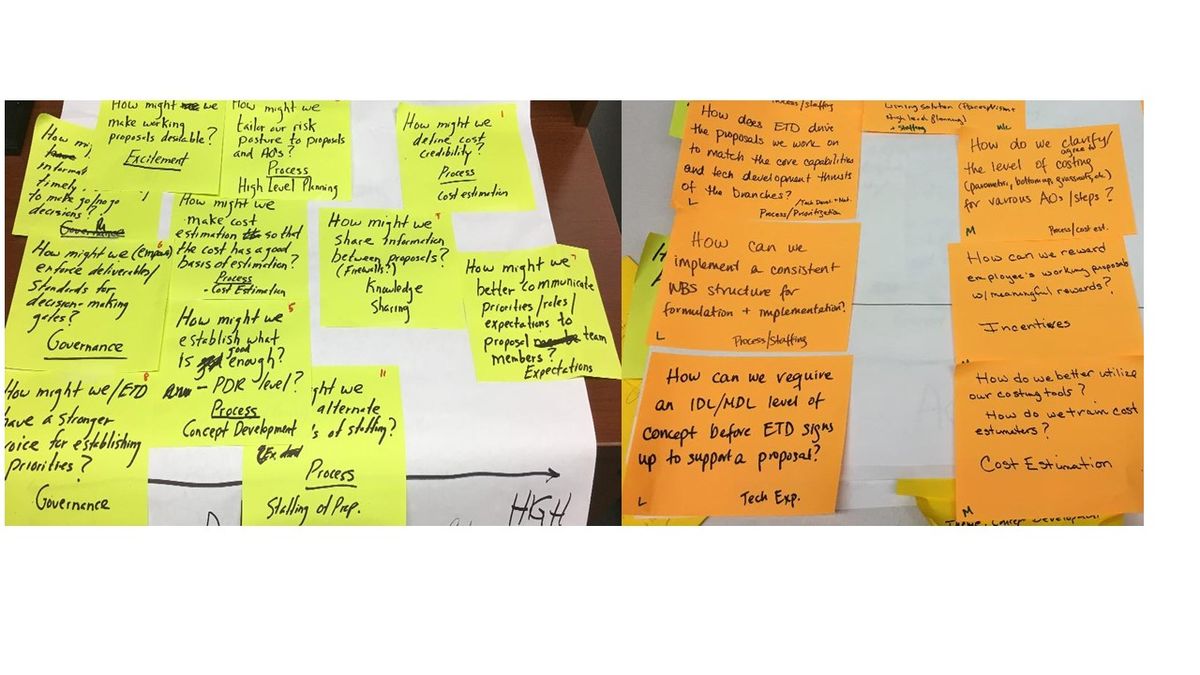 How might we
make working
proposals desirable?
Excitement
How might we
tailor our risk
posture to proposals
and AO's?
Process
High Level Planning
How might we
define cost
credibility?
Process
Cost estimation
1
How
timely
to make go/no go
decisions?
Governance
How might we
make cost
estimation so that
the cost has a good
basis of estimation?
Process
- Cost Estimation
How might we
share information
between proposals?
(Firewalls?)
Knowledge
Sharing
How might we
better communicate
priorities/roles/
expectations to
proposal team
members?
Expectations
How might we (empower)
enforce deliverables/
standards for
decision-making
gates?
Governance
6
How might we
establish what
is good enough?
- PDR level?
Process
Concept Development
5
How might we/ETD
have a stronger
voice for establishing
Priorities?
Governance
8
ght we
alternate
's of staffing?
Process
Staffing of Prop.
11
HIGH
Process/Staffing
How does ETD drive
the proposals we work on
to match the core capabilities
and tech development thrusts
of the Branches?
Process/Prioritization
L
How can we
implement a consistent
WBS structure for
formulation + implementation?
L
Process/Staffing
How can we require
an IDL/MDL level of
concept before ETD signs
up to support a proposal?
L
Tech Exp.
High level planning)
+ Staffing
How do we clarify/
agree to
the level of costing
(parametric, bottom up, grassroots, etc)
for various AOs/steps?
M
Process/cost est.
How can we reward
employee's working proposals
w/meaningful rewards?
Incentives
M
How do we better utilize
our costing tools?
How do we train cost
estimators?
Cost Estimation
M
Theme: Concept Development